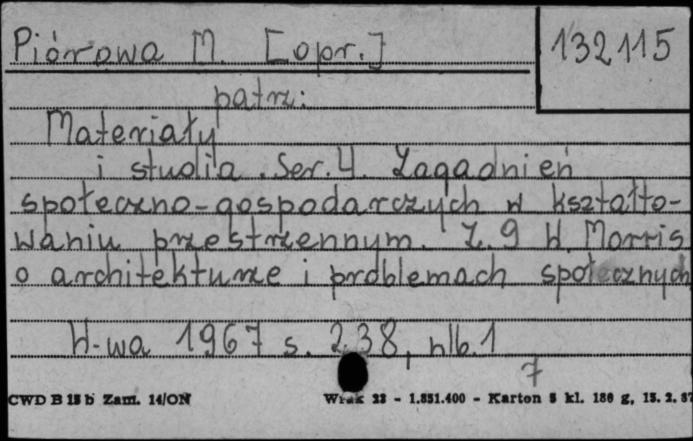 Piórowa M. [opr.]
132115
patrz:
Materiały
i studia. Ser. 4. Zagadnień
społeczno-gospodarczych w kształto-
waniu przestrzennym. Z. 9 W. Morris
o architekturze i problemach społecznych
W-wa 1967 s. 238, nlb. 1
7
CWD B 15 b Zam. 14/ON
Wrak 23 - 1.851.400 - Karton 5 kl. 180 g, 15. 2. 57